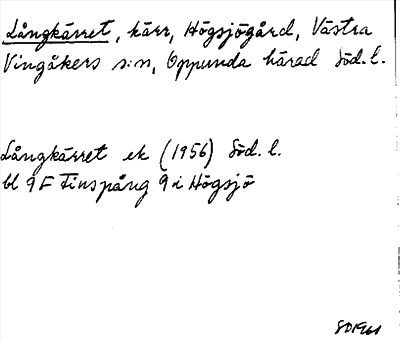 Långkärret, kärr, Högsjögård, Västra
Vingåkers s:n, Oppunda härad Söd. l.
Långkärret ek (1956) Söd. l.
bl 9F Finspång 9i Högsjö
SD1961